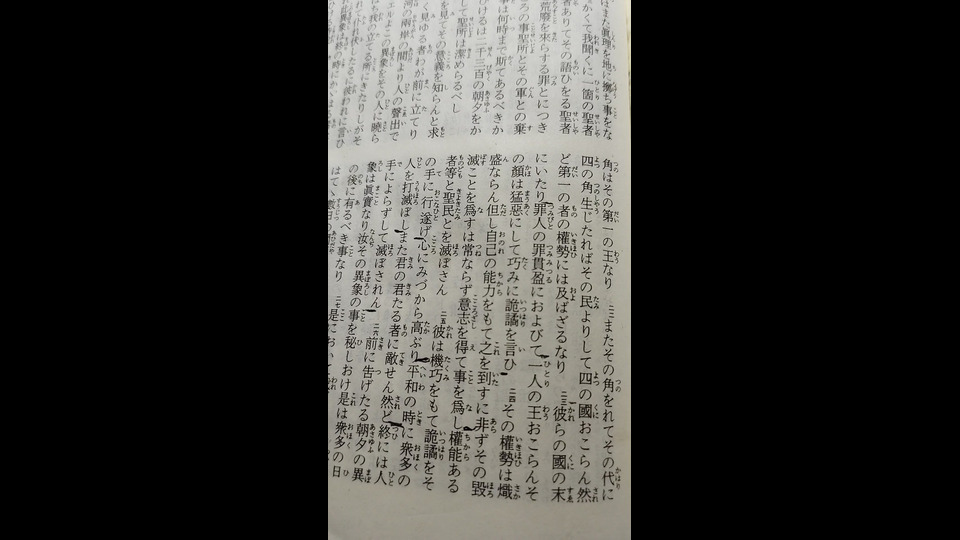 はまた眞理を地に擲ち事をな
かくて我聞くに一箇の聖者
者ありてその語ひをる聖者
荒廢を來らする罪とにつき
ろの事聖所とその軍との棄
事は何時まで斯てあるべきか
ひけるは二千三百の朝夕をか
して聖所は潔めらるべし
を見てその意義を知らんと求
く見ゆる者わが前に立てり
河の兩岸の間より人の聲出で
エルよこの異象をその人に曉ら
は我の立てる所にきたりしがそ
角はその第一の王なり 二二またその角をれてその代に
四の角生じたればその民よりして四の國おこらん然
ど第一の者の權勢には及ばざるなり 二三彼らの國の末
にいたり罪人の罪貫盈におよびて一人の王おこらんそ
の顏は猛惡にして巧みに詭譎を言ひ 二四その權勢は熾
盛ならん但し自己の能力をもて之を到すに非ずその毀
滅ことを爲すは常ならず意志を得て事を爲し權能ある
者等と聖民とを滅ぼさん 二五彼は機巧をもて詭譎をそ
の手に行遂げ心にみづから高ぶり平和の時に衆多の
人を打滅ぼしまた君の君たる者に敵せん然ど終には人
手によらずして滅ぼされん 二六前に告げたる朝夕の異
象は眞實なり汝その異象の事を秘しおけ是は衆多の日
の後に有るべき事なり 二七是において我